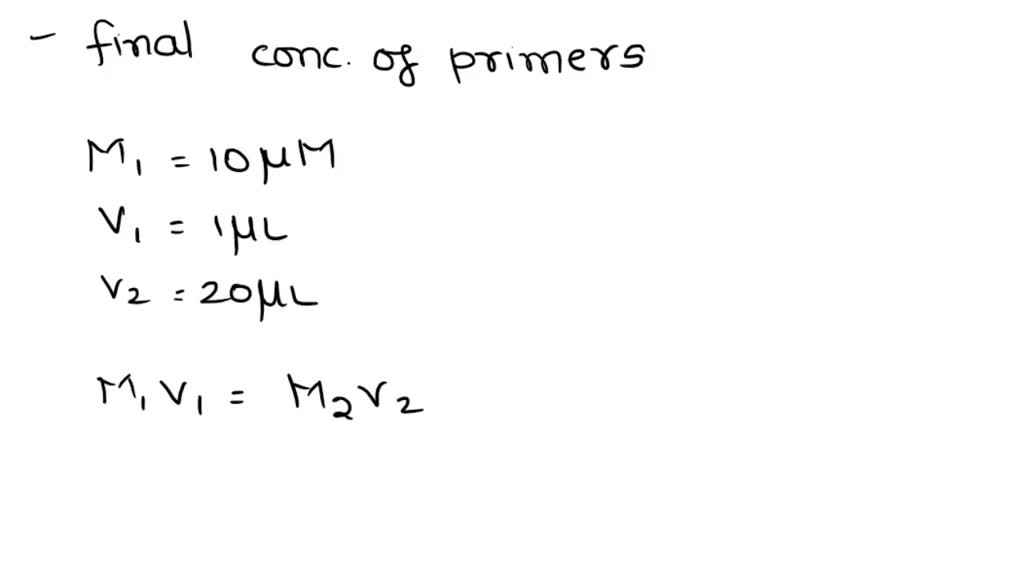 - final conc. of primers
M₁ = 10 μM
V₁ = 1 μL
V₂ = 20 μL
M₁ V₁ = M₂ V₂